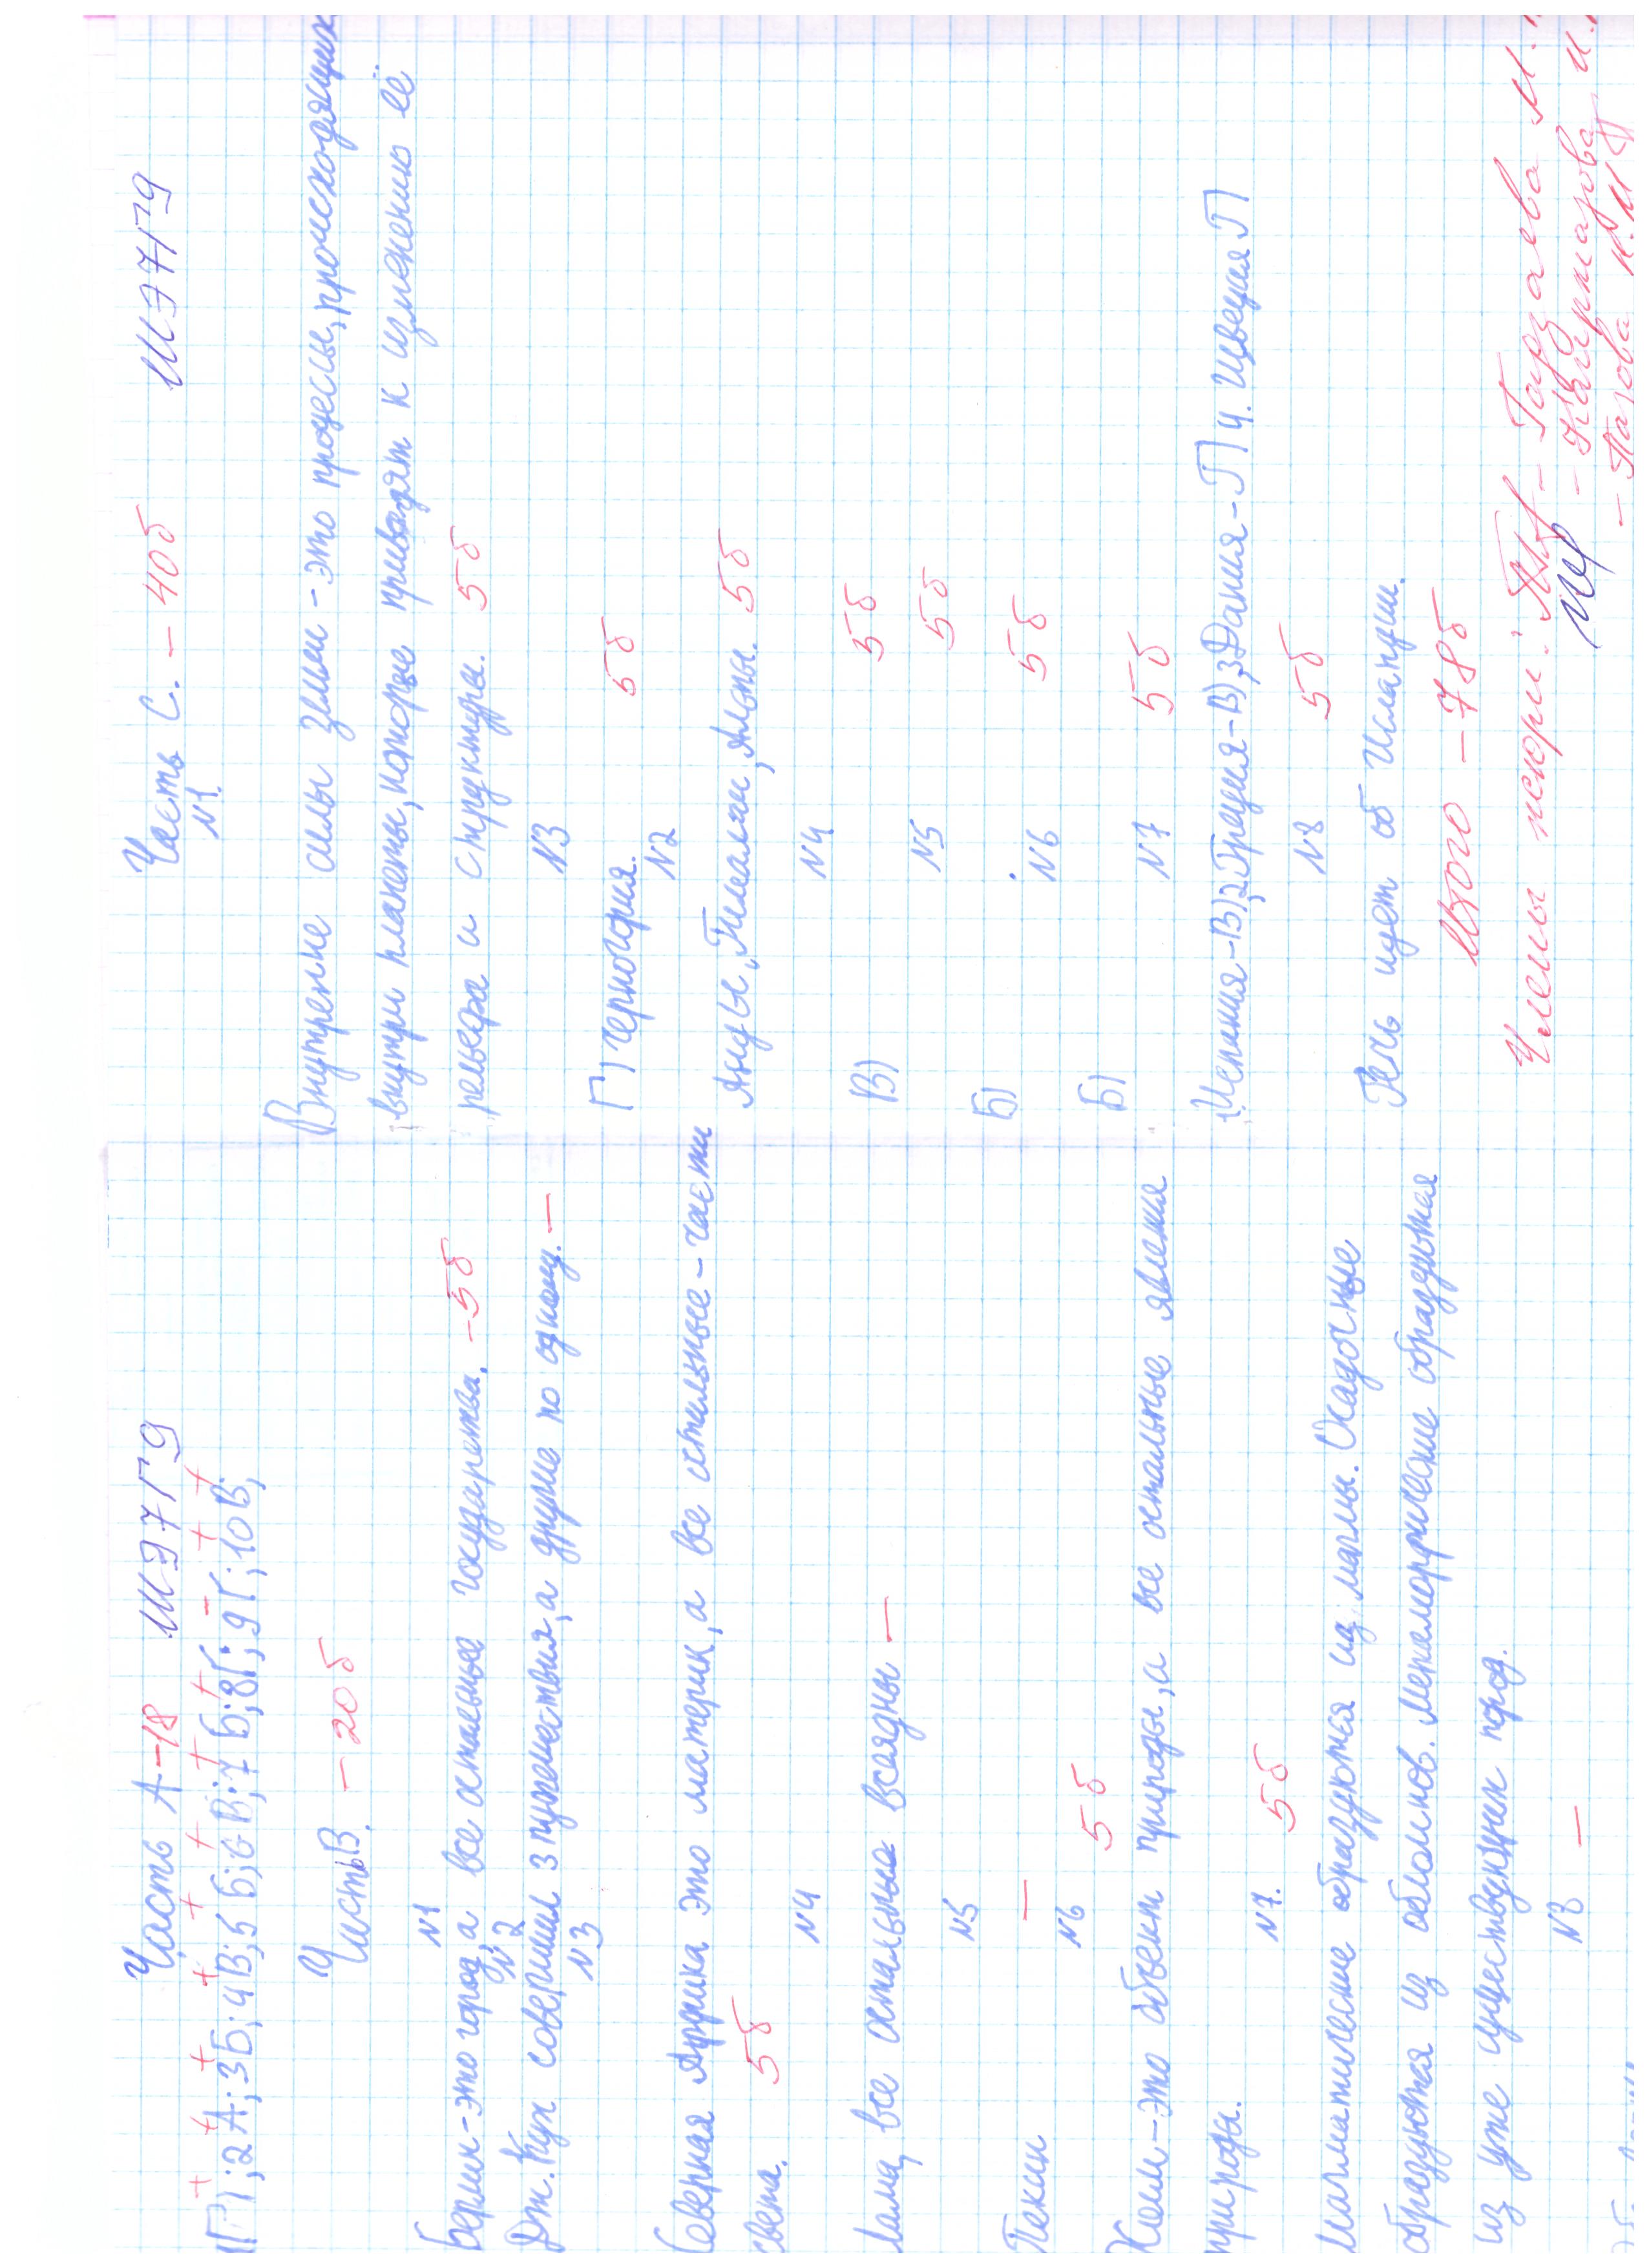 Часть А -18 ШЭ7Г9
+ + + + + + + + - + +
1Г); 2А; 3Б; 4В; 5 Б; 6 В; 7 Б; 8Г; 9Г; 10В;
ЧастьВ. - 20б
N1
Берлин-это город, а все остальные государства. -5б
N2
Дж. Кук совершил 3 путешествия, а другие по одному. -
N3
Северная Африка это материк, а все остальные - части
света. 5б
N4
Лама, все остальные всеядны -
N5
Пекин -
N6
5б
Холм-это объект природы, а все остальные явления
природы.
N7. 5б
Магматические образуются из магмы. Осадочные
образуются из обломков. Метаморфические образуются
из уже существующих пород.
N8 -
Часть С. - 40б ШЭ7Г9
N1.
Внутренние силы земли - это процессы, происходящих
внутри планеты, которые приводят к изменению её
рельефа и структуры. 5б
N3
Г) Черногория. 5б
N2
Анды, Гималаи, Альпы. 5б
N4 5б
В)
N5 5б
Б)
N6 5б
Б)
N7 5б
1.Испания-В), 2Греция-В), 3Дания-Г) 4. Швеция Г)
N8 5б
Речь идет об Исландии.
Итого - 78б
Члены жюри: